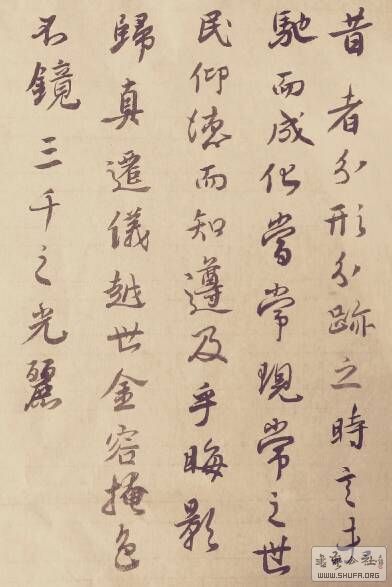 昔者分形分跡之時言未
馳而成化當常現常之世
民仰德而知遵及乎晦影
歸真遷儀越世金容掩色
不鏡三千之光麗
WWW.SHUFA.ORG